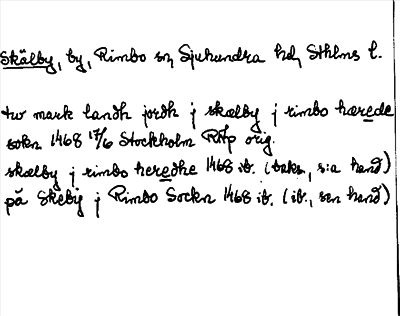 Skälby, by, Rimbo sn, Sjuhundra hd, Sthlms l.
tw mark landh jordh j skælby j rimbo hærede
sokn 1468 17/6 Stockholm RAp orig.
skælby j rimbo heredhe 1468 ib. (baks., s:a hand)
på Skeby j Rimbo Sockn 1468 ib. (ib., sen hand)